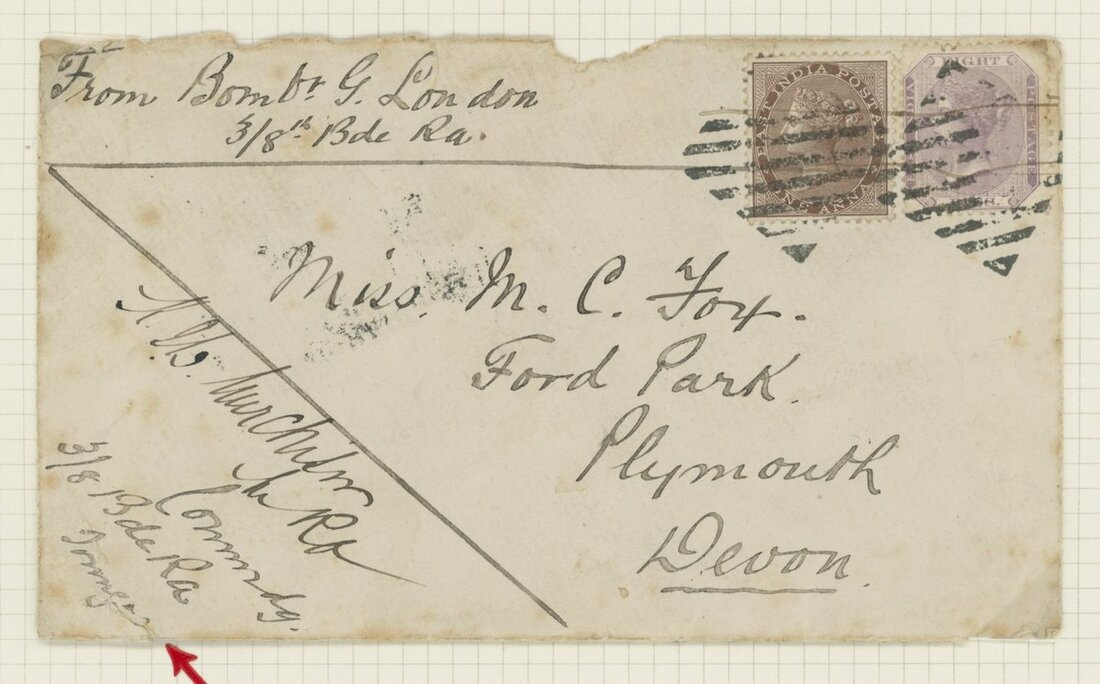 From Bombr G. London
3/8th Bde Ra.
EAST INDIA POSTAGE
ONE ANNA
EIGHT
POSTAGE
Miss. M. C. Fox.
Ford Park.
Plymouth
Devon.
Ra
Commdg.
3/8 Bde Ra